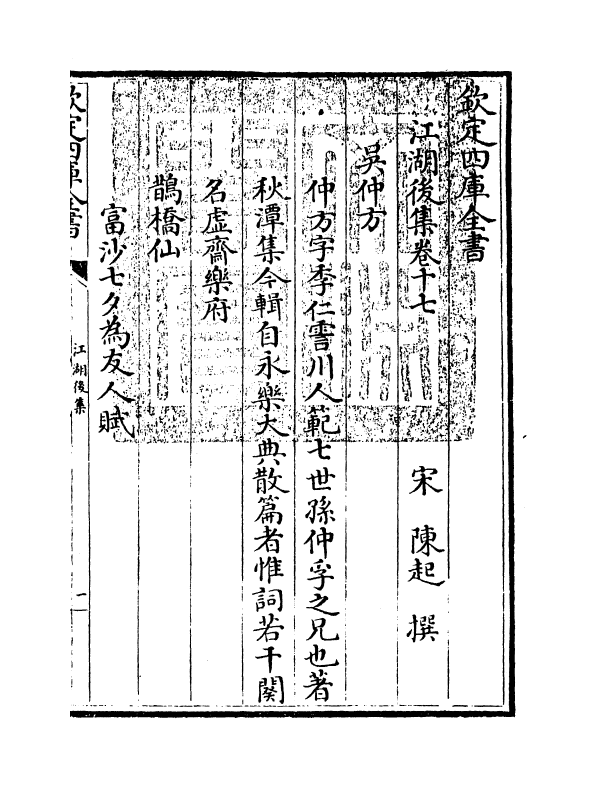 欽定四庫全書
江湖後集卷十七
宋 陳起 撰
吳仲方
仲方字季仁霅川人範七世孫仲孚之兄也著
秋潭集今輯自永樂大典散篇者惟詞若干闋
名虛齋樂府
鵲橋仙
富沙七夕為友人賦
欽定四庫全書
江湖後集